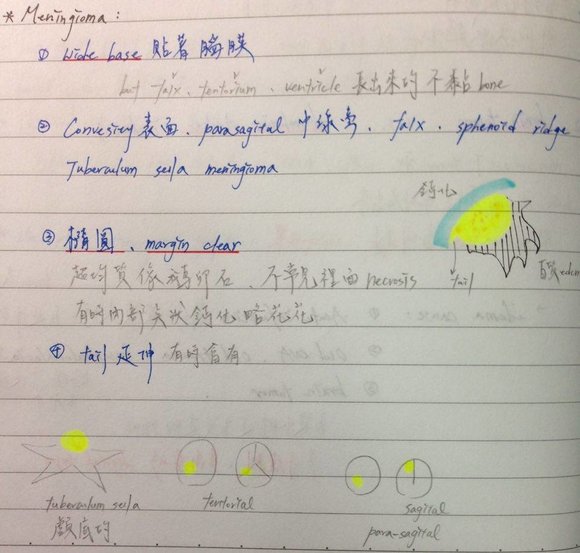 * Meningioma :
① wide base 貼著腦膜
but falx、tentorium、ventricle 長出來的 不黏 bone
② Convexity 表面、parasagital 中線旁、falx、sphenoid ridge
Tuberculum sella meningioma
鈣化
③ 橢圓、margin clear
tail
超均質像鵝卵石、不常見裡面 necrosis
有時內部點狀鈣化 略花花
④ tail 延伸 有時會有
tuberculum sella
顱底的
tentorial
sagital
para-sagital